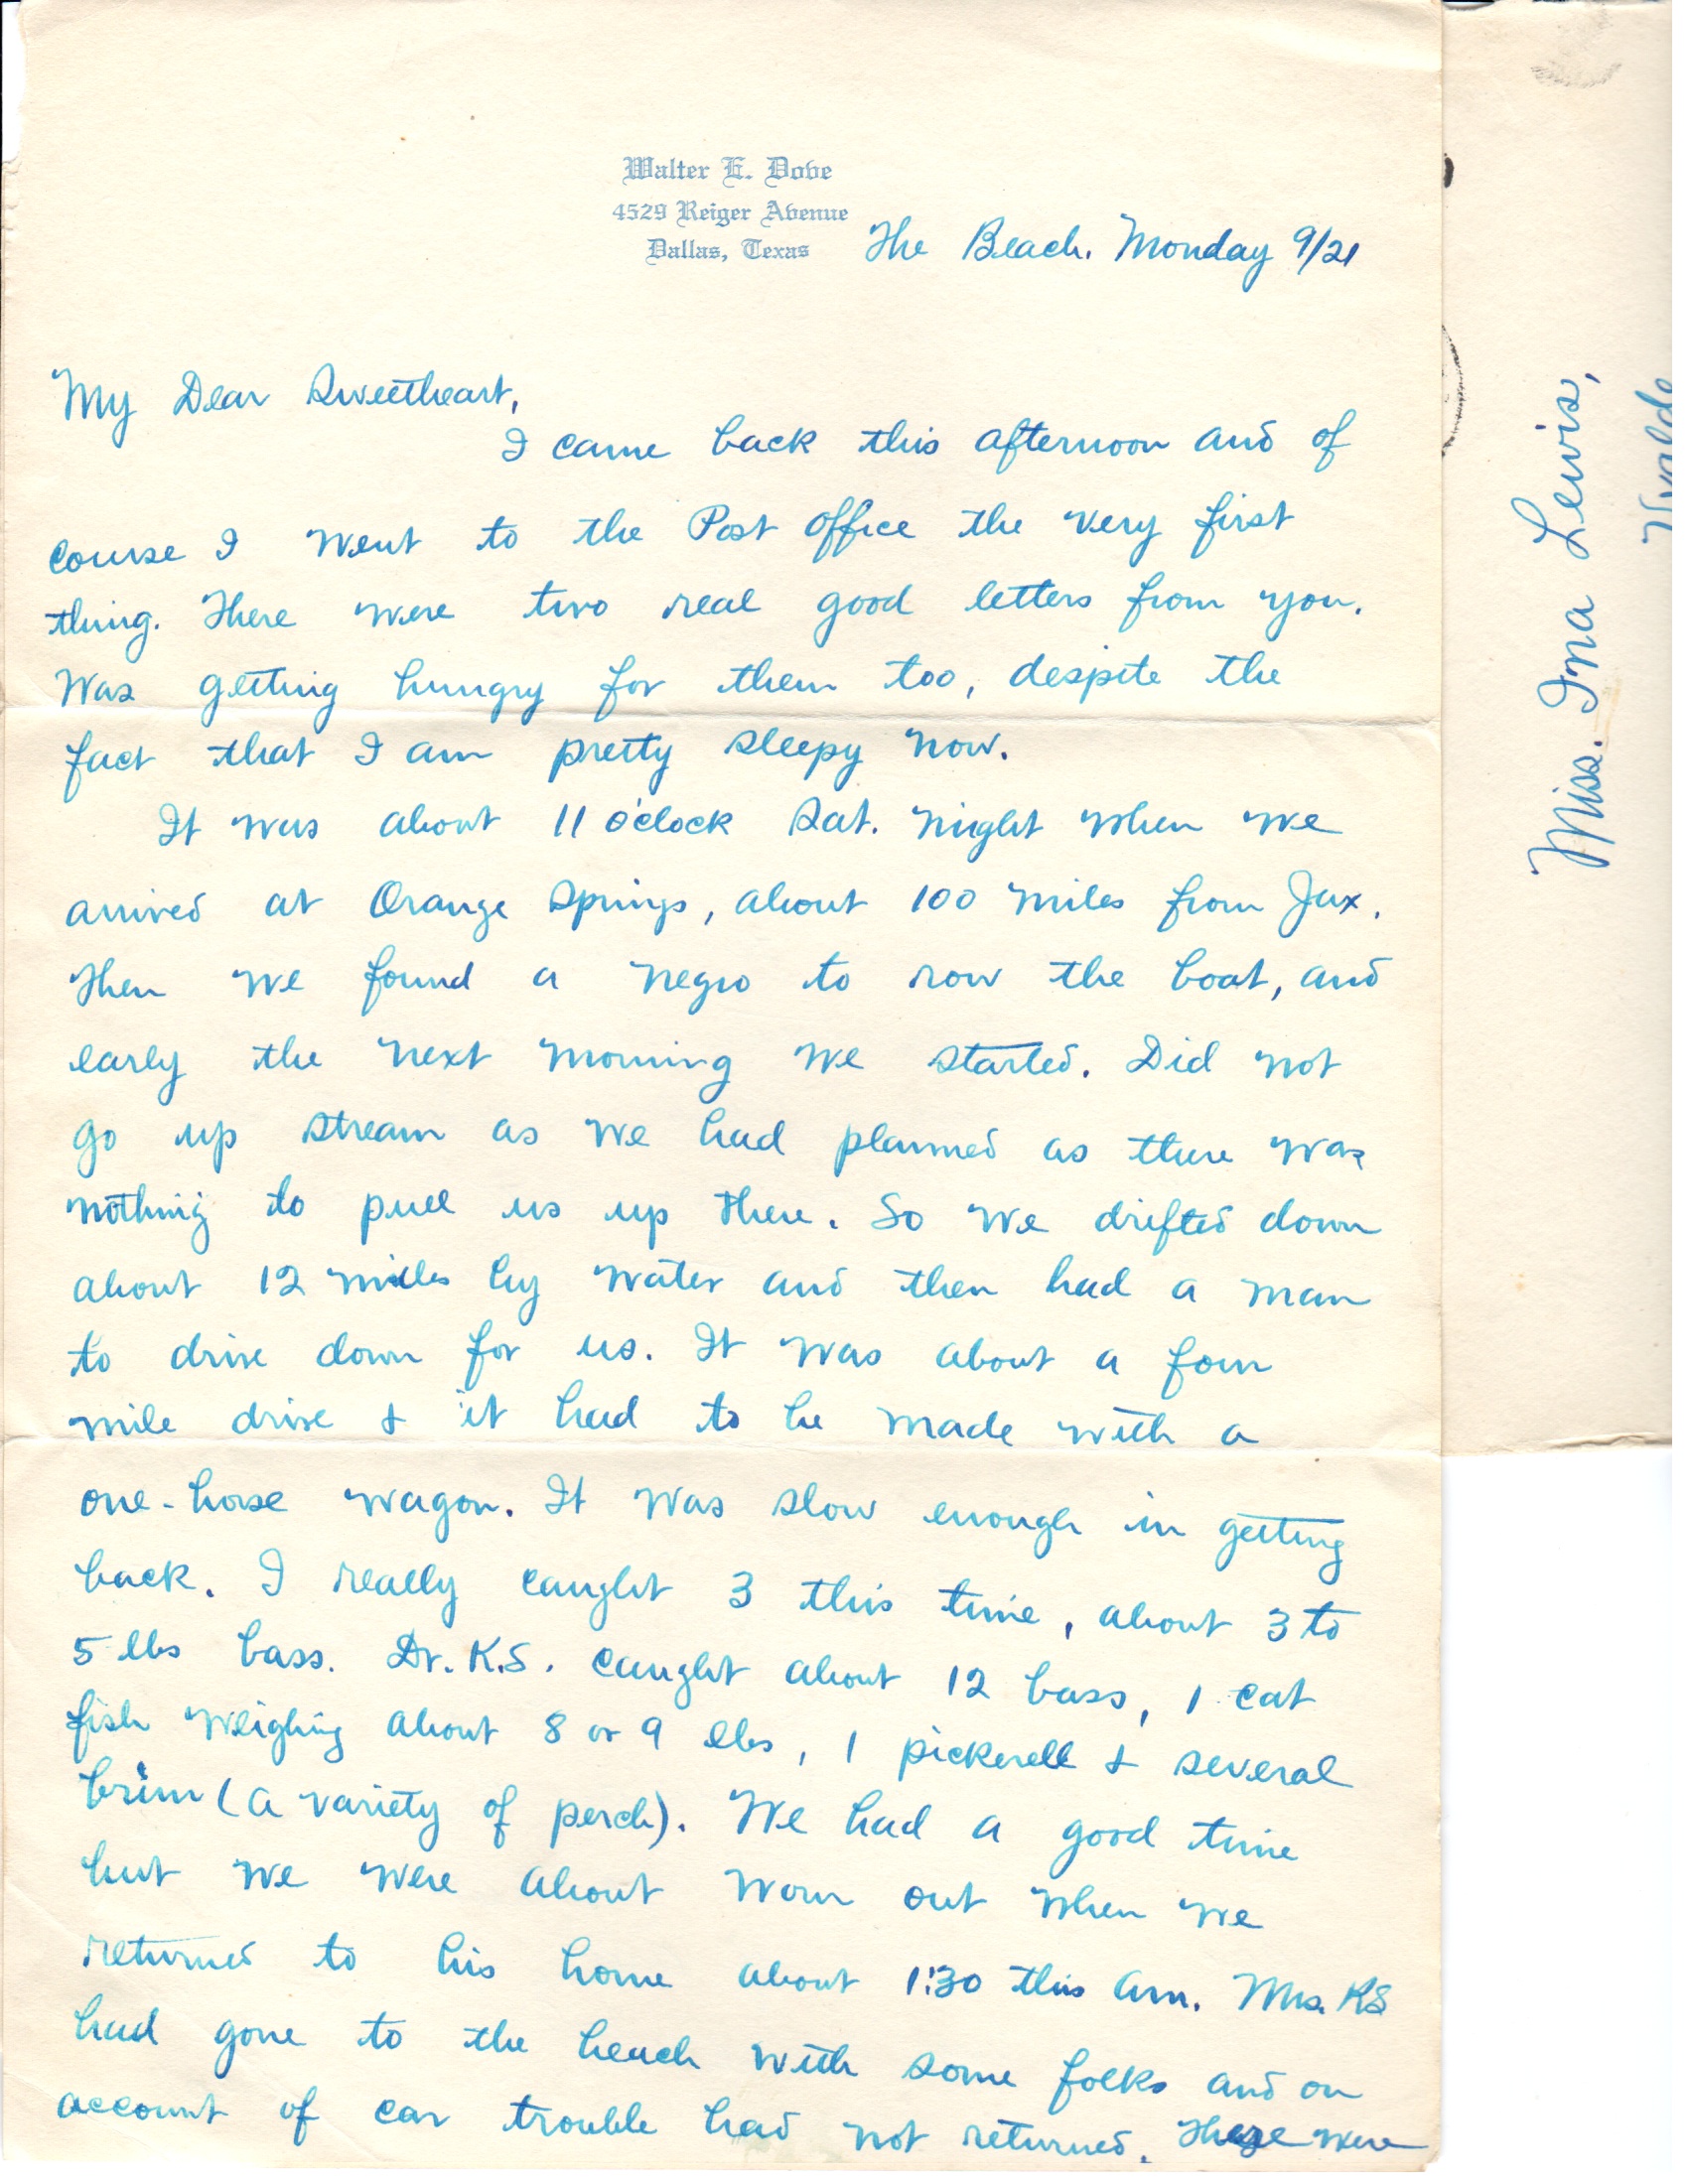 Walter E. Dove
4529 Reiger Avenue
Dallas, Texas
The Beach. Monday 9/21
My Dear Sweetheart,
I came back this afternoon and of
course I went to the Post Office the very first
thing. There were two real good letters from you.
Was getting hungry for them too, despite the
fact that I am pretty sleepy now.
It was about 11 o'clock Sat. night when we
arrived at Orange Springs, about 100 miles from Jax.
Then we found a negro to row the boat, and
early the next morning we started. Did not
go up stream as we had planned as there was
nothing to pull us up there. So we drifted down
about 12 miles by water and then had a man
to drive down for us. It was about a four
mile drive & it had to be made with a
one-horse wagon. It was slow enough in getting
back. I really caught 3 this time, about 3 to
5 lbs bass. Dr. K.S. caught about 12 bass, 1 cat
fish weighing about 8 or 9 lbs, 1 pickerell & several
brim (a variety of perch). We had a good time
but we were about worn out when we
returned to his home about 1:30 this am. Mrs. KS
had gone to the beach with some folks and on
account of car trouble had not returned. There were
Miss. Ina Lewis,
Uvalde